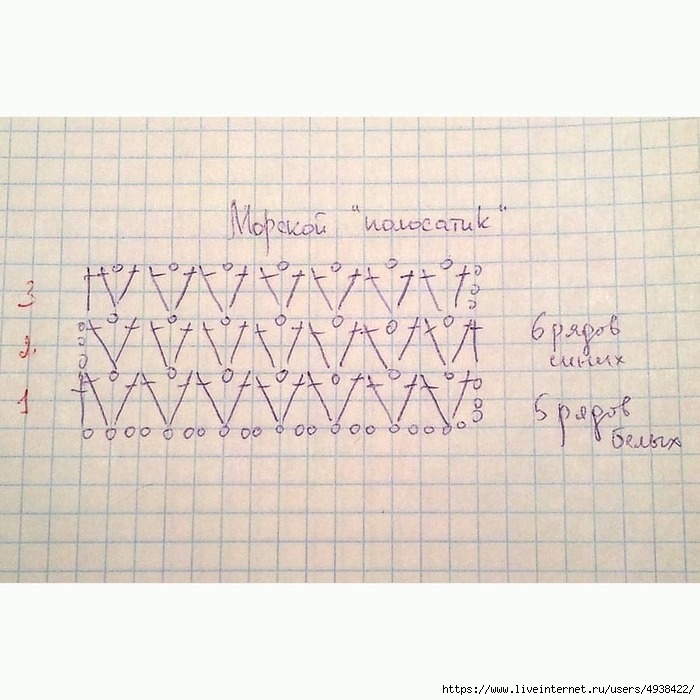 Морской "полосатик"
3
2.
1
6 рядов
синих
5 рядов
белых
https://www.liveinternet.ru/users/4938422/